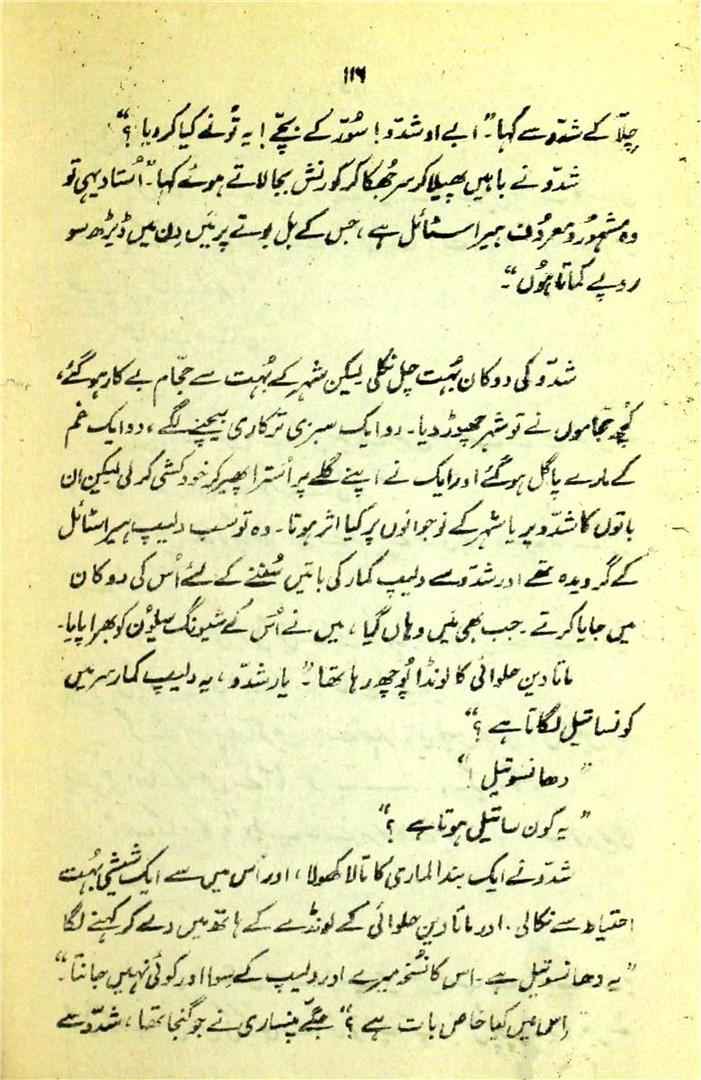 ۱۱۶
چلّا کے شدّو سے کہا۔ "ابے او شدّو! سُوّر کے بچّے! یہ تُونے کیا کر دیا؟"
شدّو نے باہیں پھیلا کر سر جُھکا کر کورنش بجا لاتے ہوئے کہا۔ "اُستاد یہی تو
وہ مشہور و معروف ہیر اسٹائل ہے، جس کے بل بوتے پر مَیں دِن میں ڈیڑھ سو
روپے کماتا ہُوں"۔
شدّو کی دوکان بُہت چل نکلی لیکن شہر کے بُہت سے حجّام بے کار ہو گئے،
کُچھ حجاموں نے تو شہر چھوڑ دیا۔ دو ایک سبزی ترکاری بیچنے لگے، دو ایک غم
کے مارے پاگل ہو گئے اور ایک نے اپنے گلے پر اُسترا پھیر کر خود کشی کر لی لیکن ان
باتوں کا شدّو پر یا شہر کے نوجوانوں پر کیا اثر ہوتا۔ وہ تو سب دلیپ ہیر اسٹائل
کے گرویدہ تھے اور شدّو سے دلیپ کمار کی باتیں سُننے کے لئے اُس کی دوکان
میں جایا کرتے۔ جب بھی مَیں وہاں گیا، میں نے اُس کے شیونگ سیلُون کو بھرا پایا۔
ماتا دین حلوائی کا لونڈا پُوچھ رہا تھا۔ "یار شدّو، یہ دلیپ کمار سر میں
کونسا تیل لگاتا ہے؟"
"دھانسو تیل!"
"یہ کون سا تیل ہوتا ہے؟"
شدّو نے ایک بند الماری کا تالا کھولا، اور اُس میں سے ایک شیشی بُہت
احتیاط سے نکالی۔ اور ماتا دین حلوائی کے لونڈے کے ہاتھ میں دے کر کہنے لگا
"یہ دھانسو تیل ہے۔ اس کا نُسخہ میرے اور دلیپ کے سوا اور کوئی نہیں جانتا۔"
"اس میں کیا خاص بات ہے؟" جگّے پنساری نے جو گنجا تھا، شدّو سے